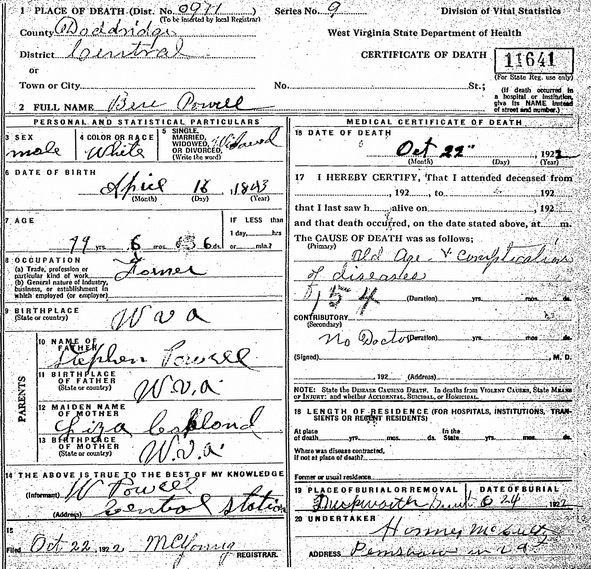 1 PLACE OF DEATH (Dist. No. 0911) Series No. 9 Division of Vital Statistics
(To be inserted by local Registrar)
County Doddridge West Virginia State Department of Health
District Central CERTIFICATE OF DEATH 11641
or (For State Reg. use only)
Town or City No. St.; (If death occurred in a hospital or institution, give its NAME instead of street and number.)
2 FULL NAME Powell
PERSONAL AND STATISTICAL PARTICULARS
3 SEX male
4 COLOR OR RACE White
5 SINGLE, MARRIED, WIDOWED, OR DIVORCED, (Write the word) Widowed
6 DATE OF BIRTH April 16, 1843
(Month) (Day) (Year)
7 AGE 79 yrs. 6 mos. 6 ds.
IF LESS than 1 day, hrs or min.?
8 OCCUPATION
(a) Trade, profession or particular kind of work
(b) General nature of Industry, business, or establishment in which employed (or employer)
Farmer
9 BIRTHPLACE (State or country) W va
PARENTS
10 NAME OF FATHER Stephen Powell
11 BIRTHPLACE OF FATHER (State or country) W.va.
12 MAIDEN NAME OF MOTHER Liza
13 BIRTHPLACE OF MOTHER (State or country) W.va.
14 THE ABOVE IS TRUE TO THE BEST OF MY KNOWLEDGE
(Informant) W Powell
(Address) Central Station
15
Filed Oct 22, 1922 McYoung REGISTRAR.
MEDICAL CERTIFICATE OF DEATH
16 DATE OF DEATH
Oct 22 1922
(Month) (Day) (Year)
17 I HEREBY CERTIFY, That I attended deceased from
, 192 , to , 192
that I last saw h alive on , 192
and that death occurred, on the date stated above, at m.
The CAUSE OF DEATH was as follows;
(Primary) Old Age & complication
of diseases
154 (Duration) yrs. mos. ds.
CONTRIBUTORY
(Secondary)
No Doctor (Duration) yrs. mos. ds.
(Signed) , M. D.
192 (Address)
NOTE: State the DISEASE CAUSING DEATH. In deaths from VIOLENT CAUSES, State MEANS OF INJURY: and whether ACCIDENTAL, SUICIDAL, OR HOMICIDAL.
18 LENGTH OF RESIDENCE (FOR HOSPITALS, INSTITUTIONS, TRANSIENTS OR RECENT RESIDENTS)
At place of death yrs. mos. ds. In the State yrs. mos. ds.
Where was disease contracted, if not at place of death?
Former or usual residence
19 PLACE OF BURIAL OR REMOVAL DATE OF BURIAL
Duckworth 24 1922
20 UNDERTAKER
ADDRESS